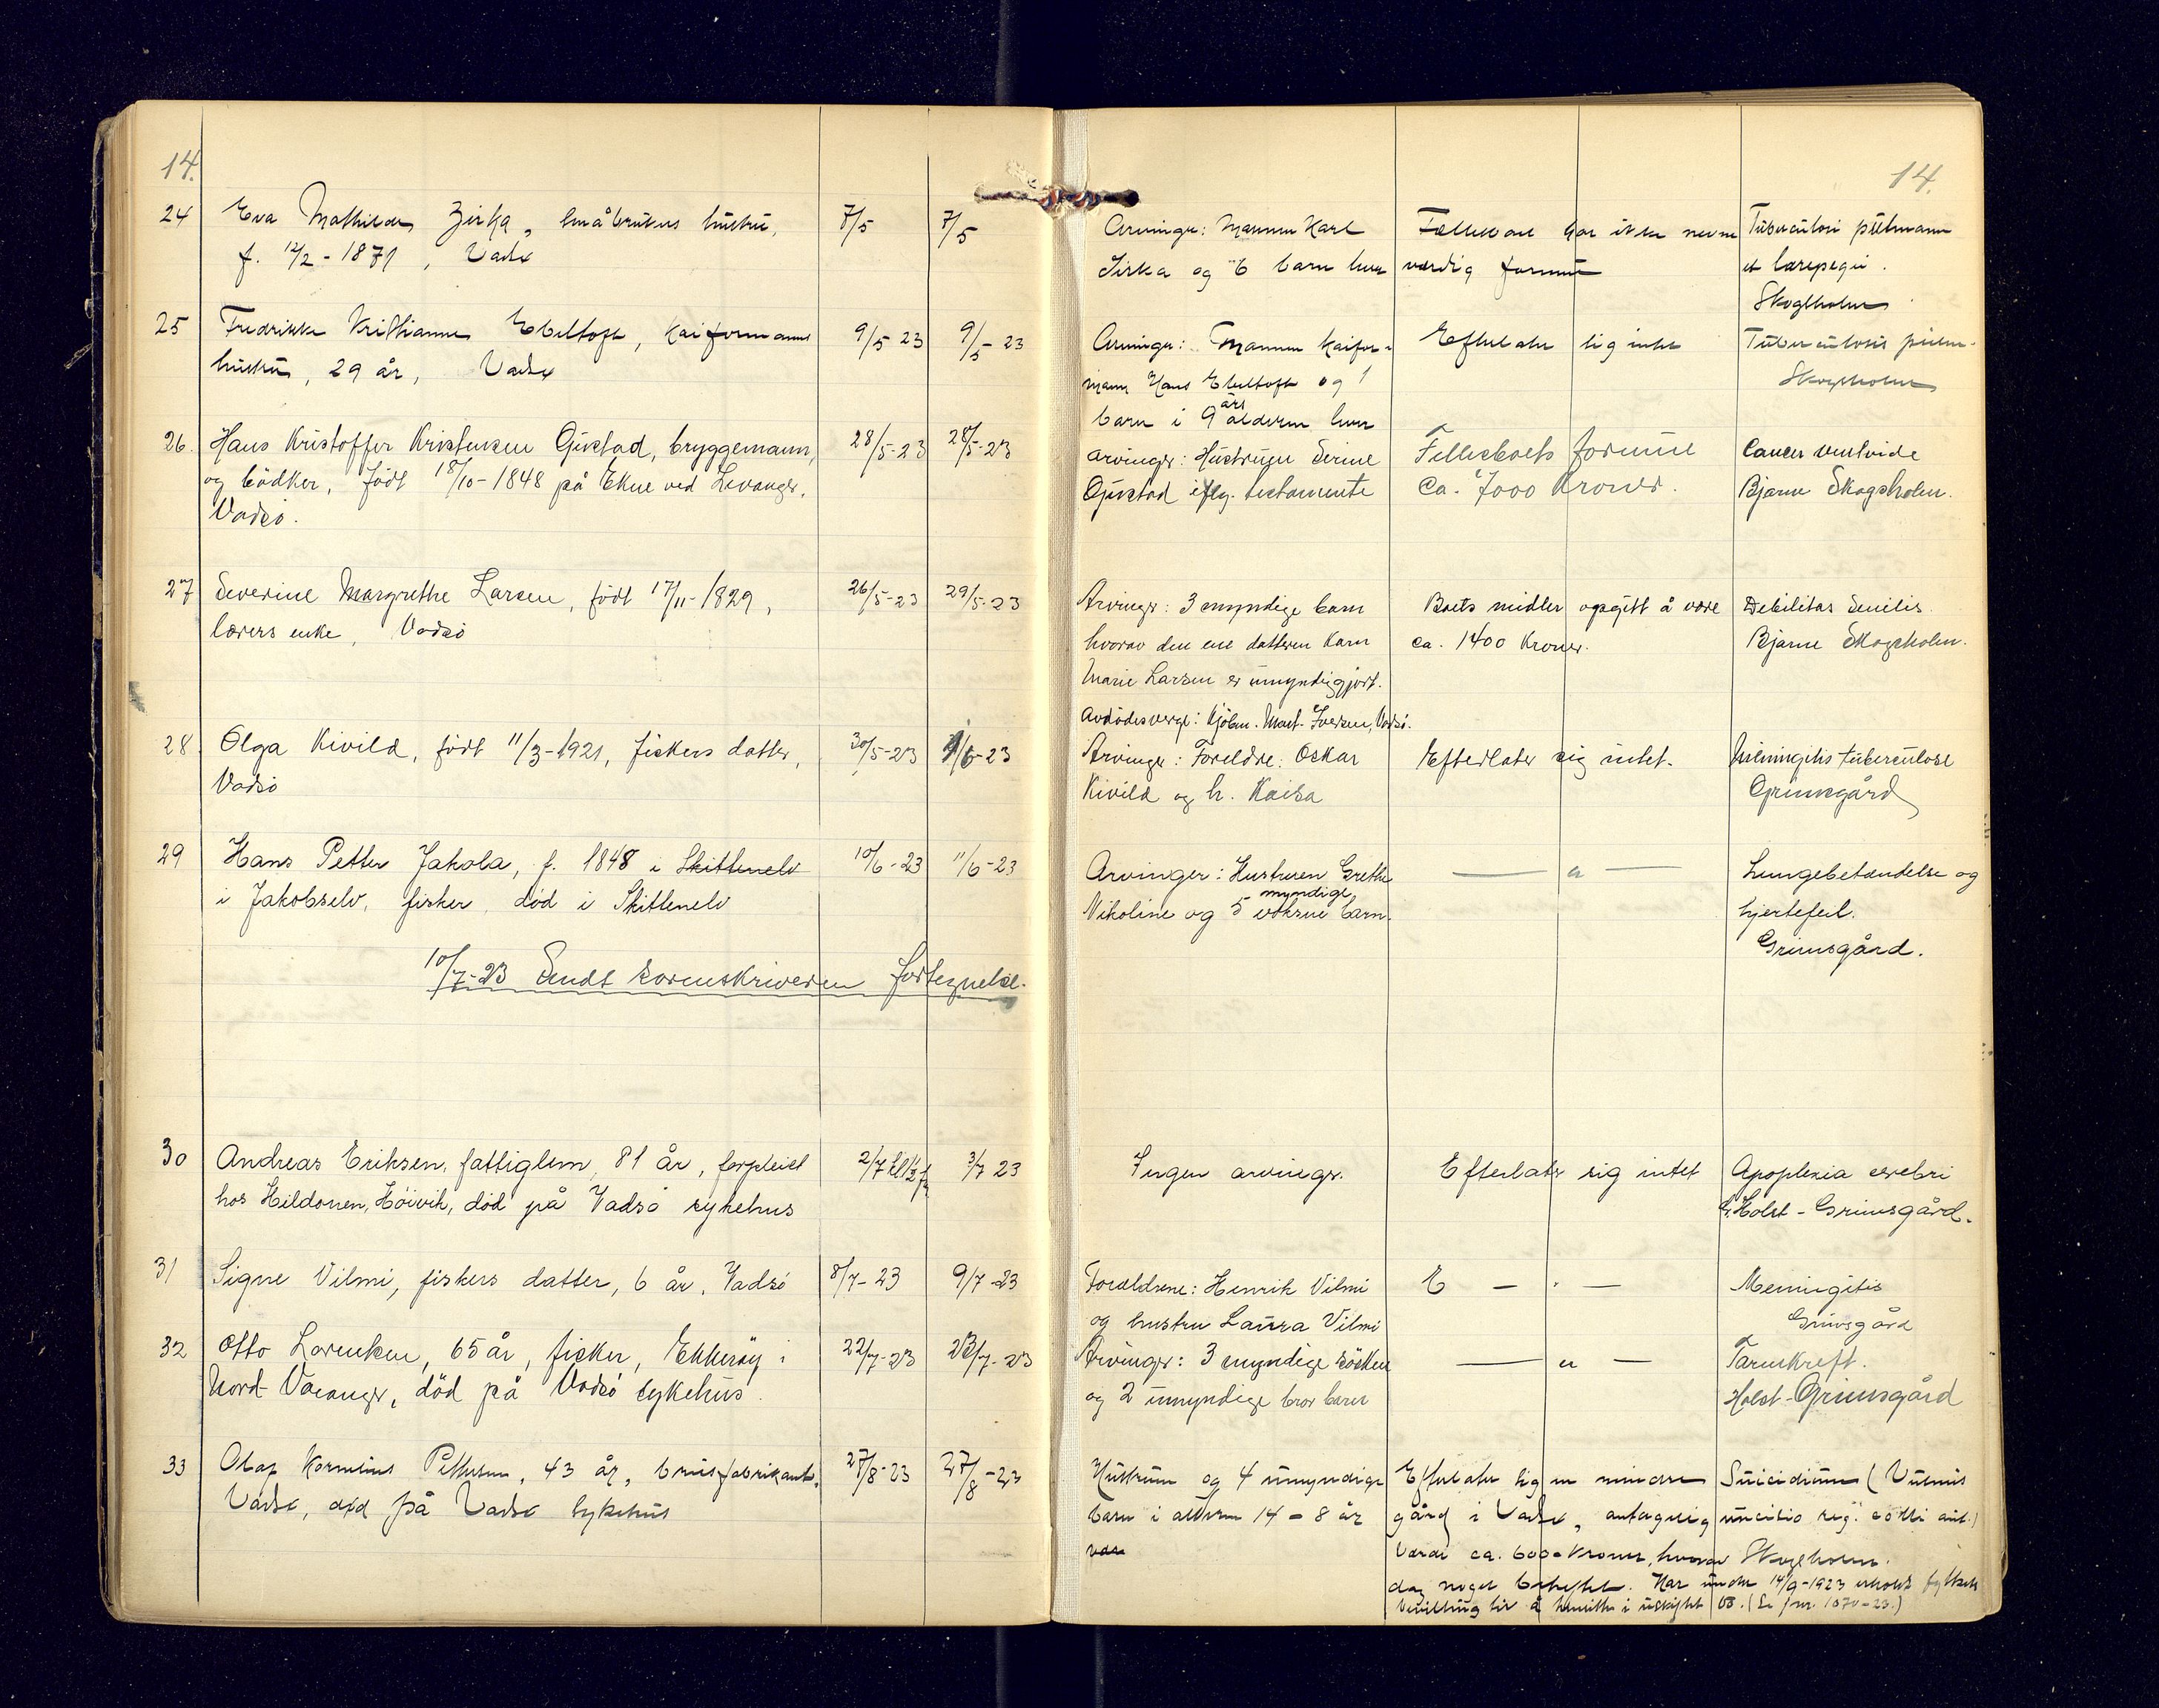 14.
14.
24 Eva Mathilde Zirka, småbrukers hustru, 7/5 7/5 Arvinger: Mannen Karl Fellesboet har ikke nevne Tuberculosis pulmonum
f. 12/2 - 1871, Vadsø Sirka og 6 barn hver verdig formue et larepegei.
Skogsholm
25 Fredrikke Kristianne Ebeltoft, kaiformanns 9/5 23 9/5 - 23 Arvinger: Mannen kaifor- Efterlater sig intet Tuberculosis pulm-
hustru, 29 år, Vadsø mann Hans Ebeltoft og 1 Skogsholm
barn i 9 års alderen hver
26. Hans Kristoffer Kristensen Gjustad, bryggemann, 28/5-23 28/5-23 arvinger: Hustruen Serine Fellesboets formue Cancer ventvide
og bødker, født 18/10-1848 på Ekne ved Levanger, Gjustad iflg. testamente Ca. 7000 Kroner. Bjarne Skogsholm.
Vadsö.
27 Severine Margrethe Larsen, født 17/11-1829, 26/5-23 29/5-23 Arvinger: 3 myndige barn Boets midler opgitt å være Debilitas Senilis
lærers enke, Vadsö hvorav den ene datteren Karn ca. 1400 Kroner. Bjarne Skogsholm.
Marie Larsen er umyndiggjort.
Avdödes verge: Kjöbm. Mart. Iversen, Vadsö.
28. Olga Kivilä, født 11/3-1921, fiskers datter, 30/5-23 1/6-23 Arvinger: Foreldre: Oskar Efterlater sig intet. Meningitis tuberculose
Vadsö Kivilä og h. Kaisa Grimsgård
29 Hans Petter Jakola, f. 1848 i Skittenelv 10/6-23 11/6-23 Arvinger: Hustruen Grethe — " — Lungebetændelse og
i Jakobselv, fisker, död i Skittenelv Nikoline og 5 myndige voksne barn. hjertefeil.
Grimsgård.
10/7-23 Sendt sorenskriveren fortegnelse.
30 Andreas Eriksen, fattiglem, 81 år, forpleiet 2/7 3/7 23 Ingen arvinger. Efterlater sig intet Apoplexia cerebri
hos Hildonen, Höivik, död på Vadsö sykehus G. Holst - Grimsgård.
31 Signe Vilmi, fiskers datter, 6 år, Vadsö 8/7-23 9/7-23 Forældrene: Henrik Vilmi E — " — Meningitis
og hustru Laura Vilmi Grimsgård
32 Otto Lorentsen, 65 år, fisker, Ekkeröy i 22/7-23 23/7-23 Arvinger: 3 myndige søsken — " — Tarmkreft.
Nord-Varanger, död på Vadsö sykehus. og 2 umyndige brorbarn Holst-Grimsgård
33 Olaf Kornelius Pettersen, 43 år, brusfabrikant, 27/8-23 27/8-23 Hustruen og 4 umyndige Efterlater sig en mindre Suicidium (Vulnus
Vadsø, død på Vadsø sykehus barn i alderen 14 - 8 år gård i Vadsø, antagelig incisio reg. colli ant.)
verdi ca. 6000 kroner, hvorav Skogsholm.
dog noget beheftet. Har under 14/9-1923 erholdt fylkets
bevilling til å hensitte i uskiftet bo. (Se jnr. 1070-23.)